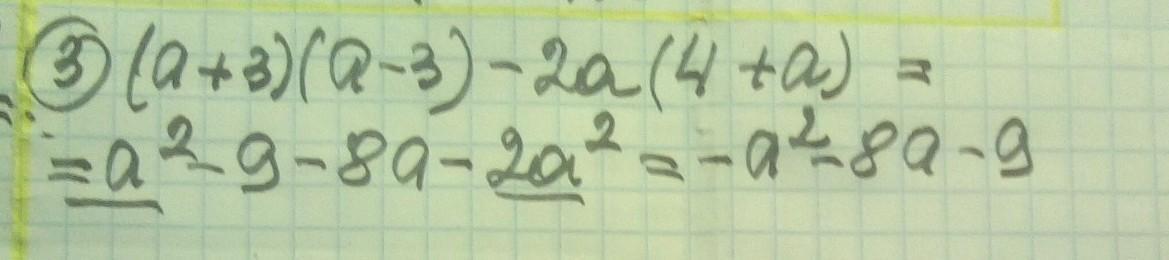 ③ (a+3)(a-3)-2a(4+a) =
= a²-9-8a-2a² = -a²-8a-9